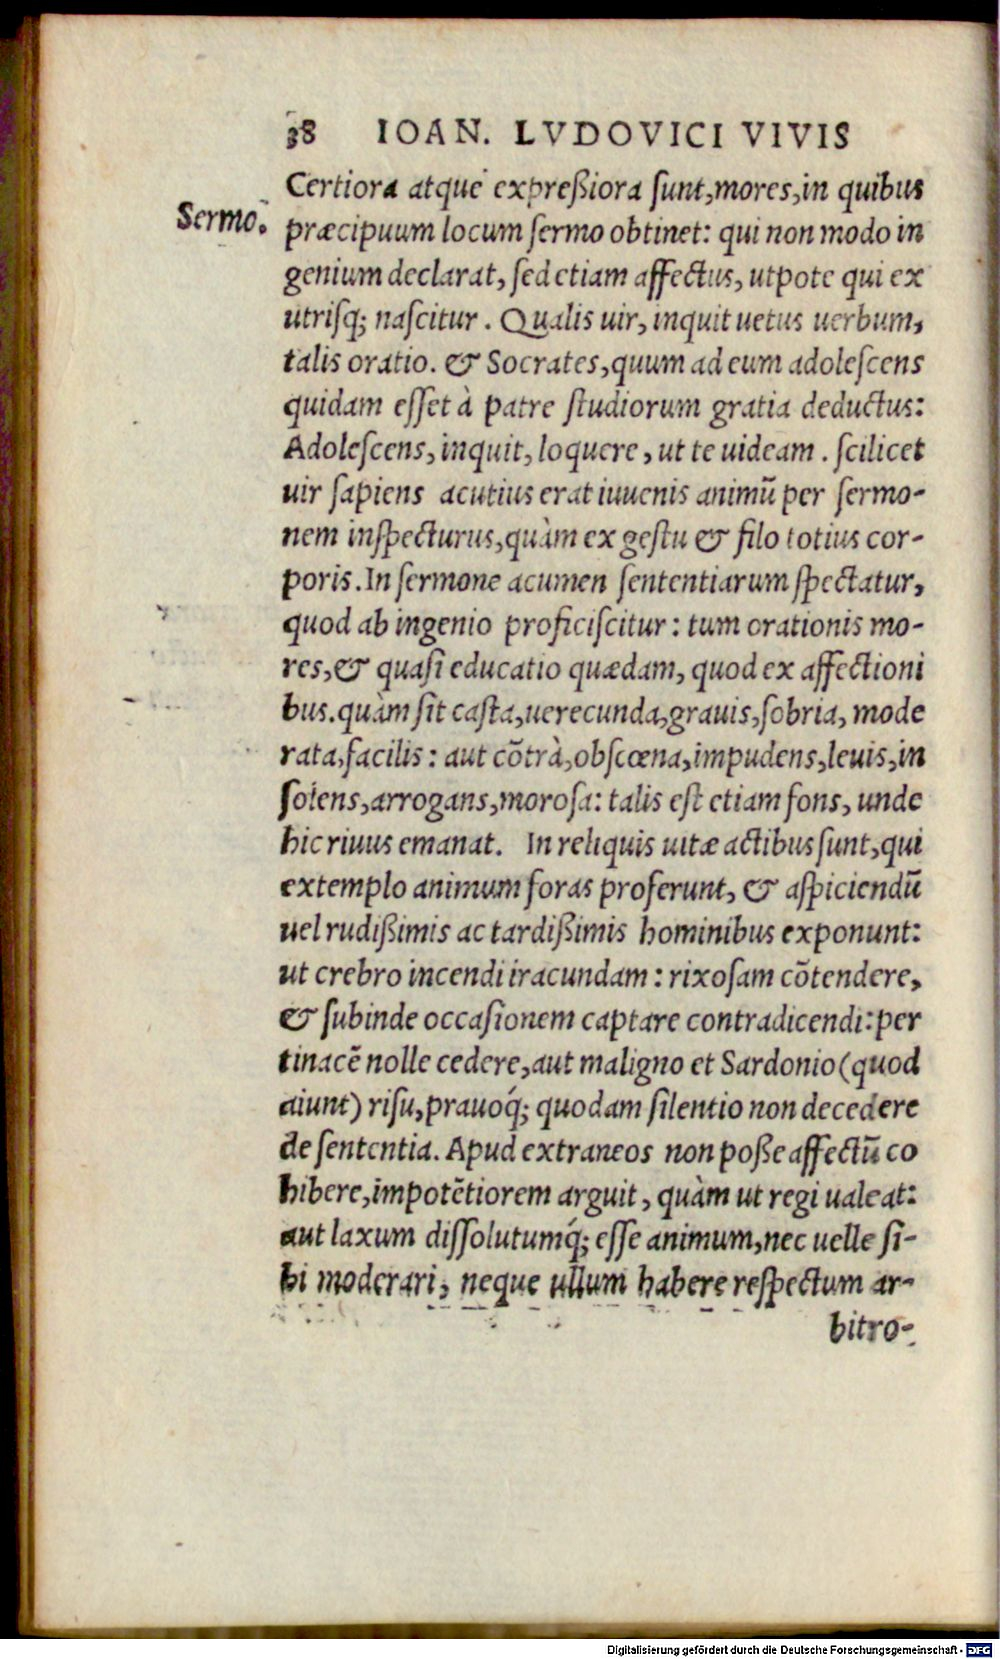 38 IOAN. LVDOVICI VIVIS
Certiora atque expreßiora ſunt, mores, in quibus
Sermo.
præcipuum locum ſermo obtinet: qui non modo in
genium declarat, ſed etiam affectus, utpote qui ex
utriſq; naſcitur. Qualis uir, inquit uetus uerbum,
talis oratio. & Socrates, quum ad eum adoleſcens
quidam eſſet à patre ſtudiorum gratia deductus:
Adoleſcens, inquit, loquere, ut te uideam. ſcilicet
uir ſapiens acutius erat iuuenis animū per ſermo-
nem inſpecturus, quàm ex geſtu & filo totius cor-
poris. In ſermone acumen ſententiarum ſpectatur,
quod ab ingenio proficiſcitur: tum orationis mo-
res, & quaſi educatio quædam, quod ex affectioni
bus. quàm ſit caſta, uerecunda, grauis, ſobria, mode
rata, facilis: aut cōtrà, obſcœna, impudens, leuis, in
ſolens, arrogans, moroſa: talis eſt etiam fons, unde
hic riuus emanat. In reliquis uitæ actibus ſunt, qui
extemplo animum foras proferunt, & aſpiciendū
uel rudißimis ac tardißimis hominibus exponunt:
ut crebro incendi iracundam: rixoſam cōtendere,
& ſubinde occaſionem captare contradicendi: per
tinacē nolle cedere, aut maligno et Sardonio (quod
aiunt) riſu, prauoq́; quodam ſilentio non decedere
de ſententia. Apud extraneos non poße affectū co
hibere, impotētiorem arguit, quàm ut regi ualeat:
aut laxum diſſolutumq́; eſſe animum, nec uelle ſi-
bi moderari, neque ullum habere reſpectum ar-
bitro-
Digitalisierung gefördert durch die Deutsche Forschungsgemeinschaft - DFG